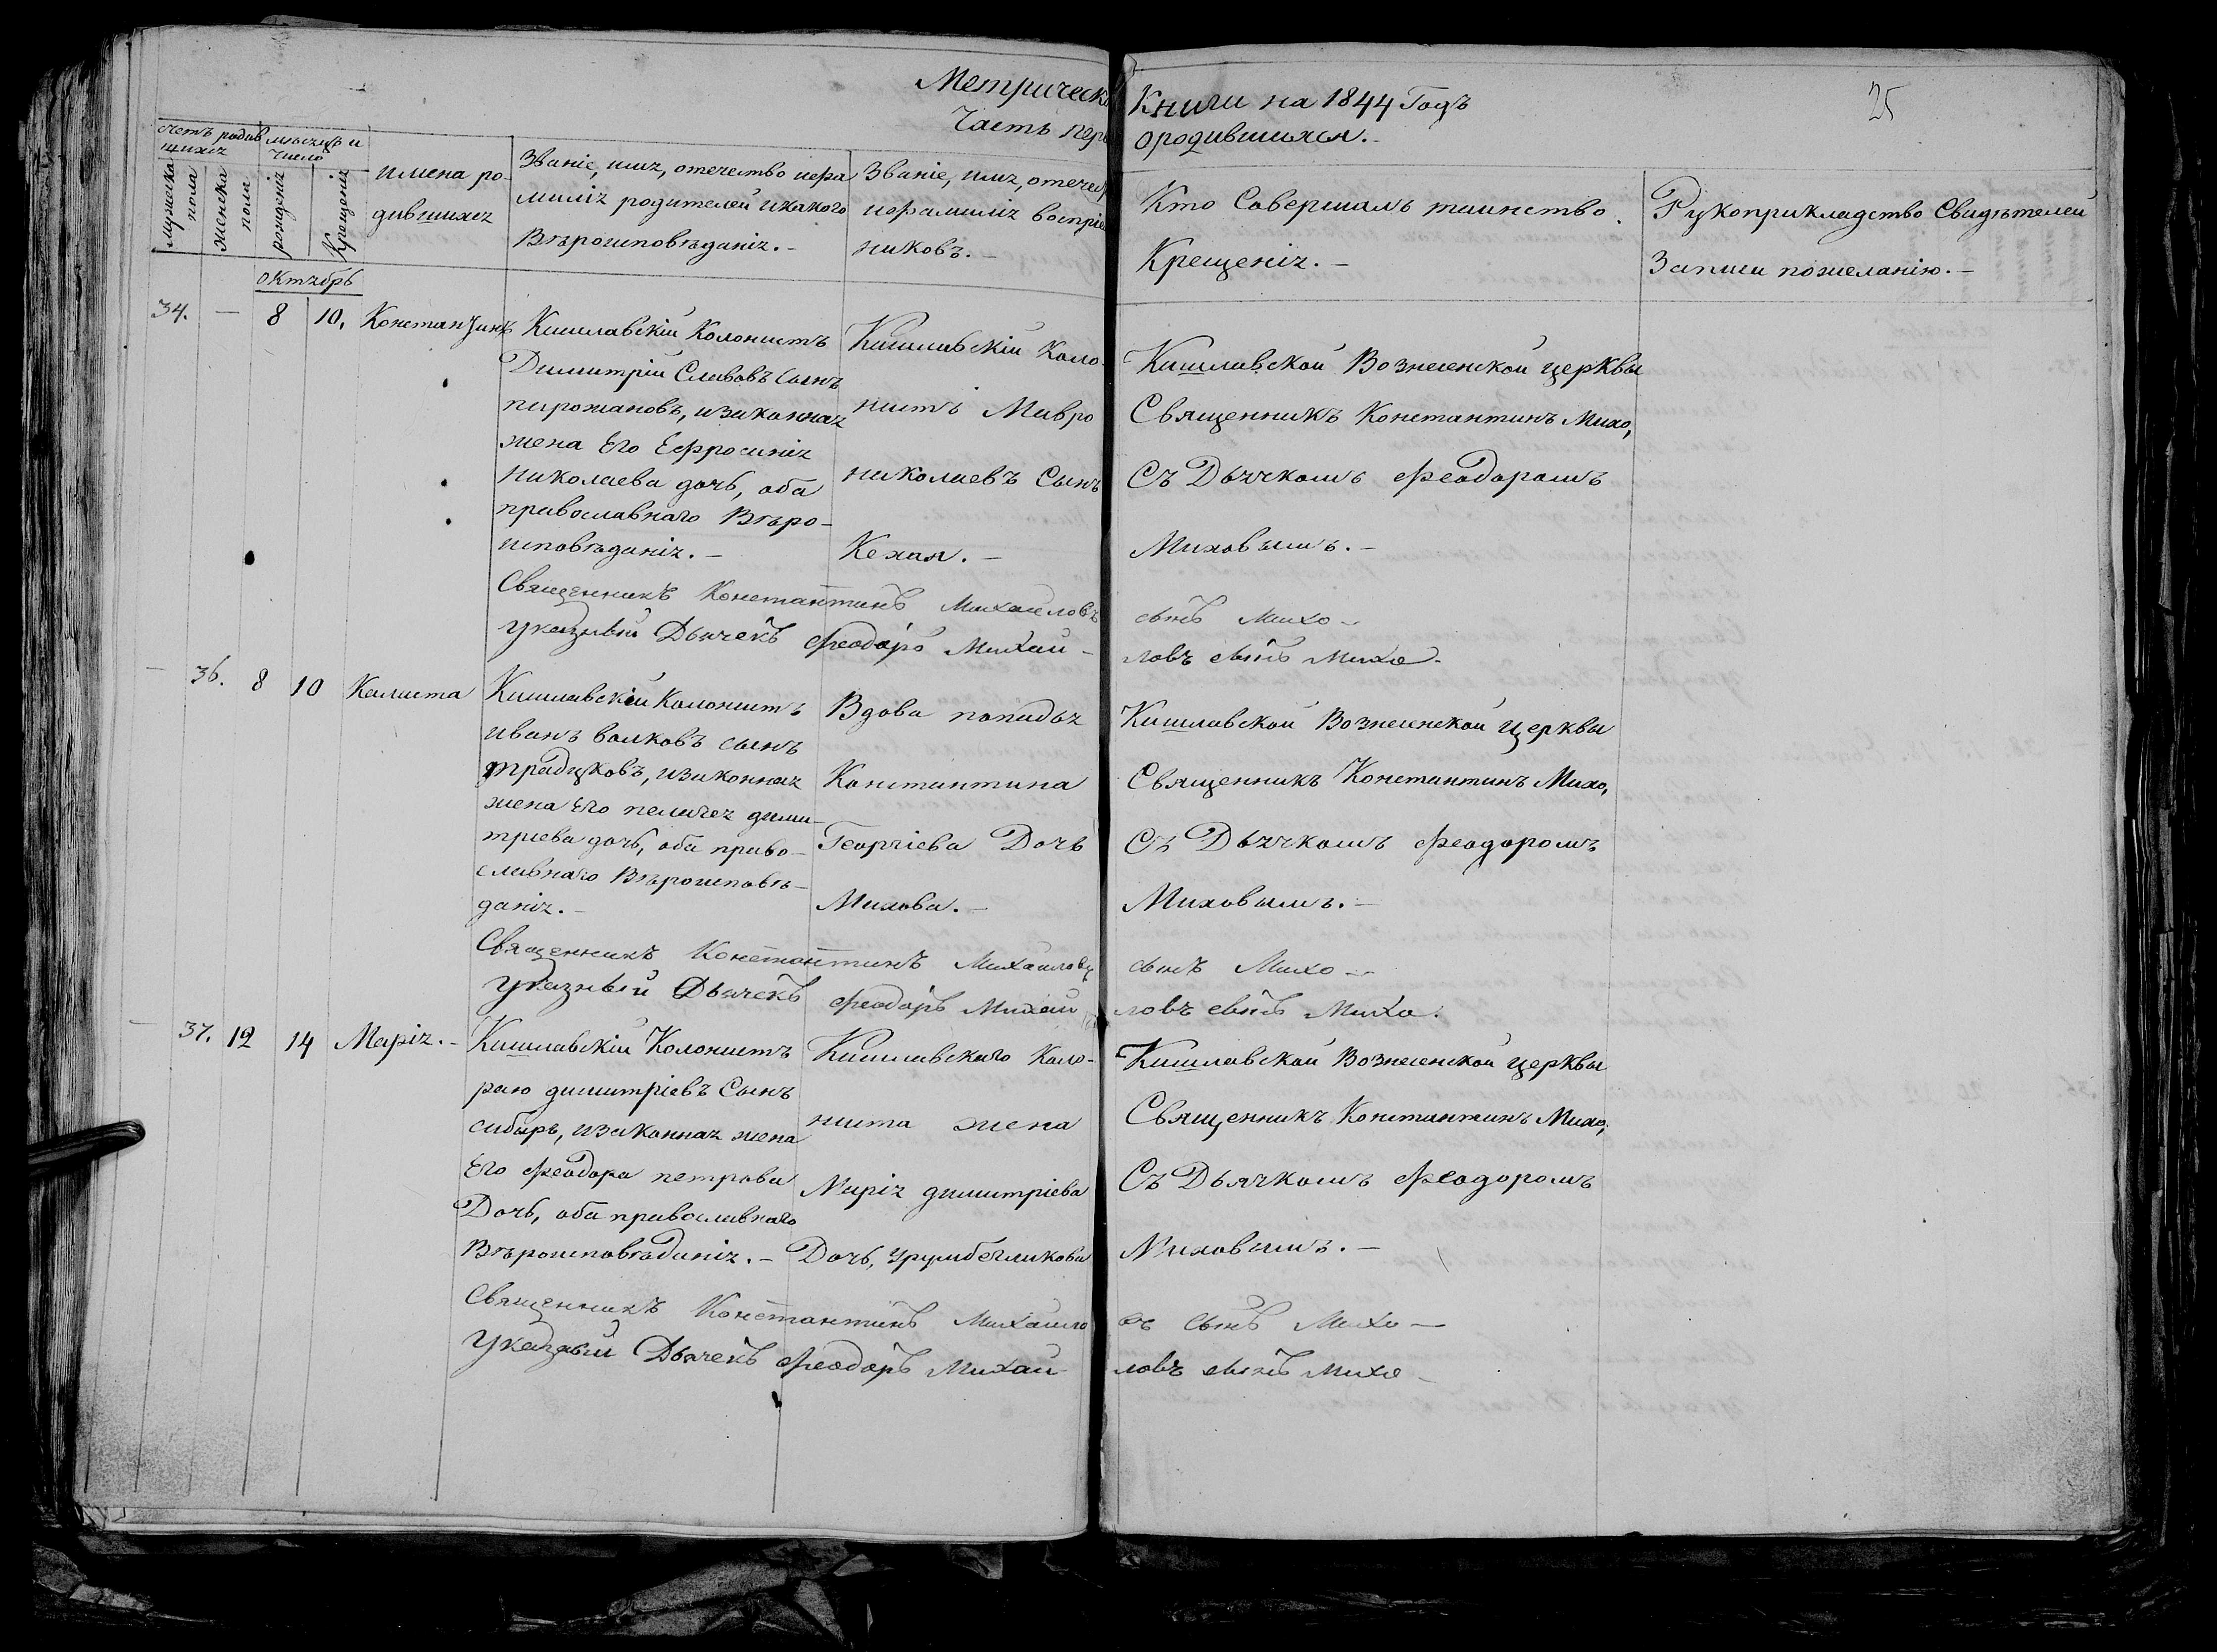 Метрическо
Часть пер
Книги на 1844 Годъ
ородившихся.-
25
счетъ родив
шихся
мѣсяцъ и
число
мужеска
пола
женска
пола
рожденія
Крещенія
имена ро-
дившихся
Званіе, имя, отечество ифа
милія родителей икакого
Вѣроисповѣданія.-
Званіе, имя, отечес
ифамилія воспріе
никовъ.-
Кто Совершалъ таинство
Крещенія.-
Рукоприкладство Свидѣтелей
Записи пожеланію.-
Октябрь
34. - 8 10. Константинъ
Кишлавскій Колонистъ
Димитрій Славовъ сынъ
пирожановъ, изаконная
жена Его Ефросинія
Николаева дочь, оба
православнаго Вѣро-
исповѣданія.-
Кишлавскій Коло-
нистъ Мавро
николаевъ Сынъ
Кехая.-
Кишлавской Вознесенской церквы
Священникъ Константинъ Михо,
Съ Дьячкомъ Феодоромъ
Миховымъ.-
Священникъ Константинъ Михаиловъ сынъ Михо-
Указный Дьячекъ Феодоръ Михаи-ловъ сынъ Михо-
- 36. 8 10 Калиста
Кишлавскій Колонистъ
иванъ волковъ сынъ
изаконная
жена Его дими-
тріева дочь, оба право-
славнаго Вѣроисповѣ-
данія.-
Вдова попадья
Константина
Георгіева Дочь
Михова.-
Кишлавской Вознесенской церквы
Священникъ Константинъ Михо,
Съ Дьячкомъ Феодоромъ
Миховымъ.-
Священникъ Константинъ Михаиловъ сынъ Михо-
Указный Дьячекъ Феодоръ Михаиловъ сынъ Михо.
- 37. 12 14 Марія.-
Кишлавскій Колонистъ
раю димитріевъ Сынъ
сибырь, изаконная жена
Его Феодора петрова
Дочь, оба православнаго
Вѣроисповѣданія.-
Кишлавскаго Коло-
ниста жена
Марія димитріева
Дочь,
Кишлавской Вознесенской церквы
Священникъ Константинъ Михо,
Съ Дьячкомъ Феодоромъ
Миховымъ.-
Священникъ Константинъ Михаиловъ сынъ Михо-
Указный Дьячекъ Феодоръ Михаиловъ сынъ Михо-